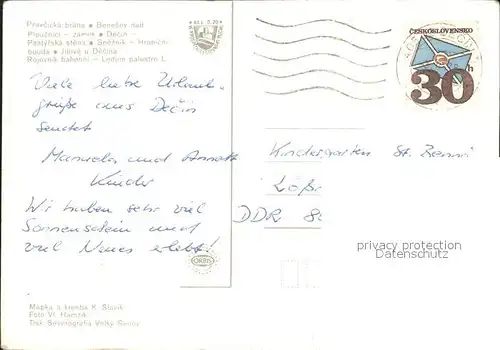 Pravčická brána • Benešov nad
Ploučnicí – zámek • Děčín –
Pastýřská stěna • Sněžník – Hraniční
bouda • Jílové u Děčína
Rojovník bahenní – Ledum palustre L.
Kčs 0,30
ČESKOSLOVENSKO
30 h
Viele liebe Urlaub-
grüße aus Dečin
sendet
Manuela und Annett
Kinder
Wir haben sehr viel
Sonnenschein und
viel Neues erlebt!
Kindergarten St. Benno
DDR
privacy protection
Datenschutz
ORBIS
Mapka a kresba K. Slavík
Foto Vl. Hamzík
Tisk Severografia Velký Šenov